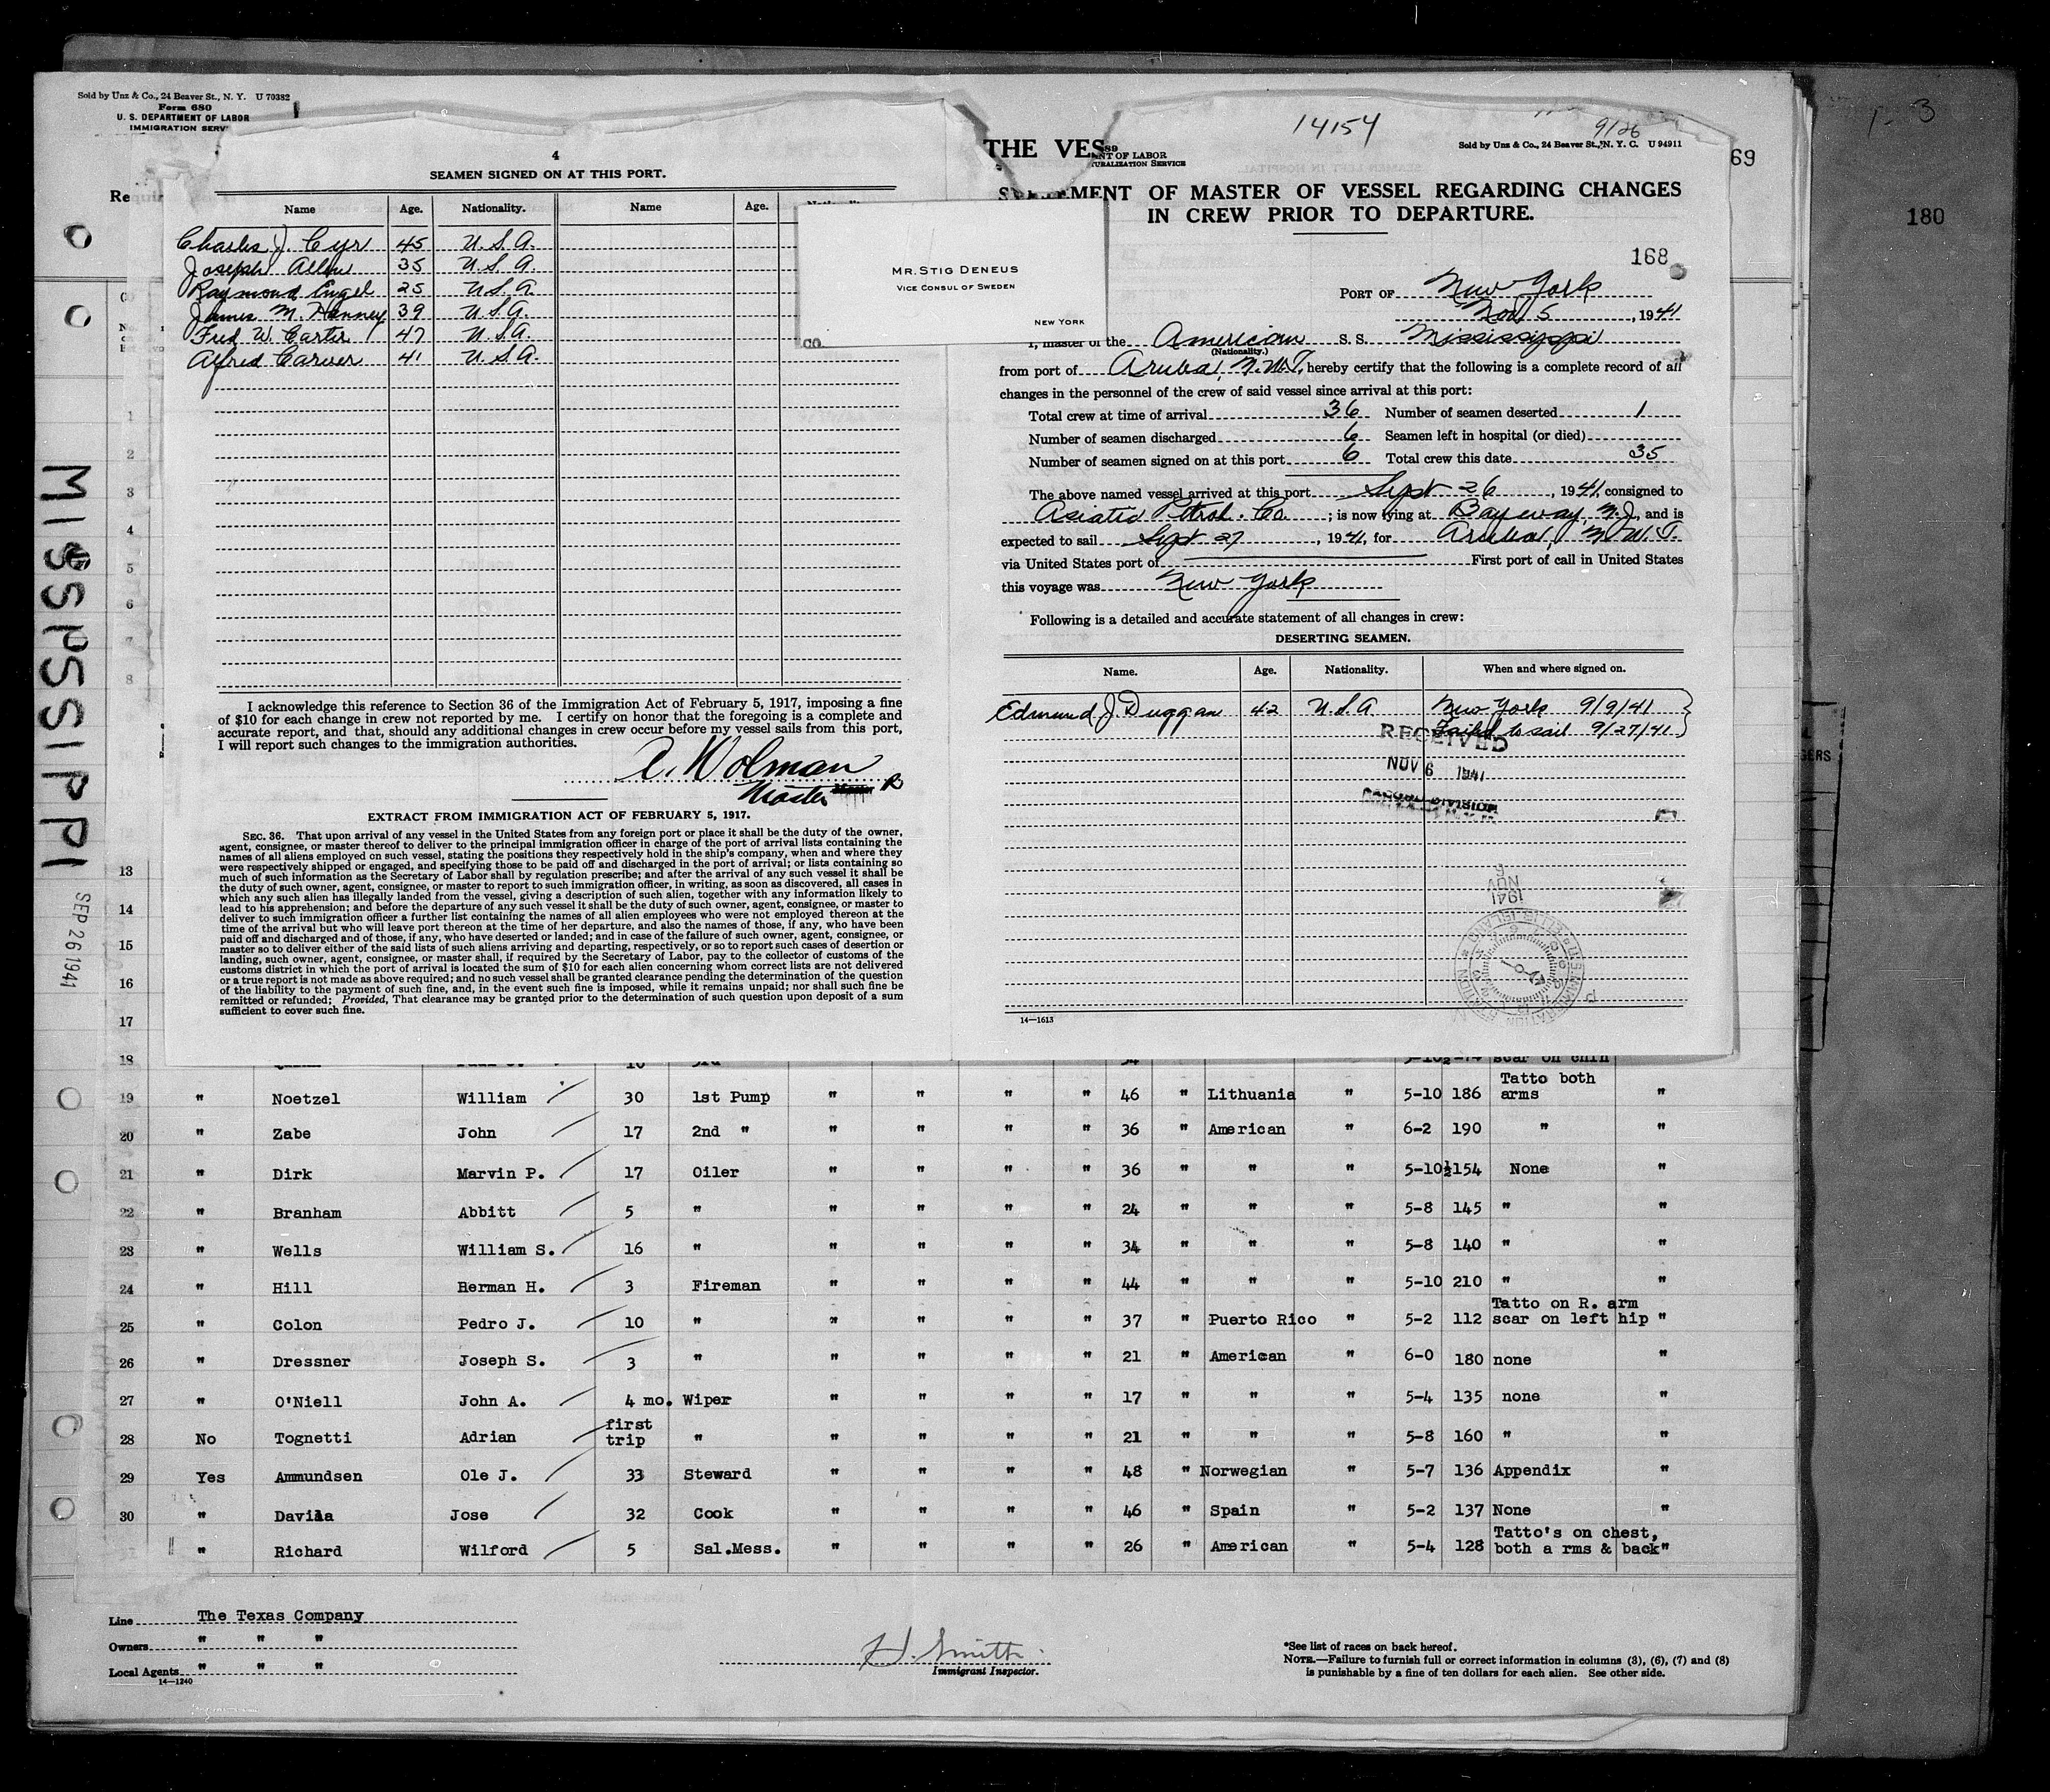 Sold by Unz & Co., 24 Beaver St., N. Y. U 70382
Form 680
U. S. DEPARTMENT OF LABOR
IMMIGRATION SERV
THE VES
69
180
MISSISSIPPI
SEP 26 1941
4
SEAMEN SIGNED ON AT THIS PORT.
Name Age. Nationality. Name Age.
Charles J. Cyr 45 U.S.A.
Joseph Allen 35 U.S.A.
Raymond Engel 25 U.S.A.
James M. Henney 39 U.S.A.
Fred W. Carter 47 U.S.A.
Alfred Carver 41 U.S.A.
I acknowledge this reference to Section 36 of the Immigration Act of February 5, 1917, imposing a fine
of $10 for each change in crew not reported by me. I certify on honor that the foregoing is a complete and
accurate report, and that, should any additional changes in crew occur before my vessel sails from this port,
I will report such changes to the immigration authorities.
A. Wolman
Master
EXTRACT FROM IMMIGRATION ACT OF FEBRUARY 5, 1917.
SEC. 36. That upon arrival of any vessel in the United States from any foreign port or place it shall be the duty of the owner,
agent, consignee, or master thereof to deliver to the principal immigration officer in charge of the port of arrival lists containing the
names of all aliens employed on such vessel, stating the positions they respectively hold in the ship's company, when and where they
were respectively shipped or engaged, and specifying those to be paid off and discharged in the port of arrival; or lists containing so
much of such information as the Secretary of Labor shall by regulation prescribe; and after the arrival of any such vessel it shall be
the duty of such owner, agent, consignee, or master to report to such immigration officer, in writing, as soon as discovered, all cases in
which any such alien has illegally landed from the vessel, giving a description of such alien, together with any information likely to
lead to his apprehension; and before the departure of any such vessel it shall be the duty of such owner, agent, consignee, or master to
deliver to such immigration officer a further list containing the names of all alien employees who were not employed thereon at the
time of the arrival but who will leave port thereon at the time of her departure, and also the names of those, if any, who have been
paid off and discharged and of those, if any, who have deserted or landed; and in case of the failure of such owner, agent, consignee, or
master so to deliver either of the said lists of such aliens arriving and departing, respectively, or so to report such cases of desertion or
landing, such owner, agent, consignee, or master shall, if required by the Secretary of Labor, pay to the collector of customs of the
customs district in which the port of arrival is located the sum of $10 for each alien concerning whom correct lists are not delivered
or a true report is not made as above required; and no such vessel shall be granted clearance pending the determination of the question
of the liability to the payment of such fine, and, in the event such fine is imposed, while it remains unpaid; nor shall such fine be
remitted or refunded; Provided, That clearance may be granted prior to the determination of such question upon deposit of a sum
sufficient to cover such fine.
MR. STIG DENEUS
VICE CONSUL OF SWEDEN
NEW YORK
14154
9/26
Sold by Unz & Co., 24 Beaver St., N. Y. C. U 94911
STATEMENT OF MASTER OF VESSEL REGARDING CHANGES
IN CREW PRIOR TO DEPARTURE.
168
PORT OF New York
Nov 5, 1941
I, master of the American S. S. Mississippi
(Nationality.)
from port of Aruba, N.W.I., hereby certify that the following is a complete record of all
changes in the personnel of the crew of said vessel since arrival at this port:
Total crew at time of arrival 36 Number of seamen deserted 1
Number of seamen discharged 6 Seamen left in hospital (or died)
Number of seamen signed on at this port 6 Total crew this date 35
The above named vessel arrived at this port Sept 26, 1941, consigned to
Asiatic Petrol. Co. ; is now lying at Bayway, N.J., and is
expected to sail Sept 27, 1941, for Aruba, N.W.I.
via United States port of First port of call in United States
this voyage was New York
Following is a detailed and accurate statement of all changes in crew:
DESERTING SEAMEN.
Name. Age. Nationality. When and where signed on.
Edmund J Duggan 42 U.S.A New York 9/9/41
Failed to sail 9/27/41
RECEIVED
NOV 6 1941
RECORD DIVISION
14—1613
19 " Noetzel William 30 1st Pump " " " " 46 " Lithuania " 5-10 186 Tatto both arms "
20 " Zabe John 17 2nd " " " " " 36 " American " 6-2 190 " "
21 " Dirk Marvin P. 17 Oiler " " " " 36 " " " 5-10½ 154 None "
22 " Branham Abbitt 5 " " " " " 24 " " " 5-8 145 " "
23 " Wells William S. 16 " " " " " 34 " " " 5-8 140 " "
24 " Hill Herman H. 3 Fireman " " " " 44 " " " 5-10 210 " "
25 " Colon Pedro J. 10 " " " " " 37 " Puerto Rico " 5-2 112 Tatto on R. arm scar on left hip "
26 " Dressner Joseph S. 3 " " " " " 21 " American " 6-0 180 none "
27 " O'Niell John A. 4 mo. Wiper " " " " 17 " " " 5-4 135 none "
28 No Tognetti Adrian first trip " " " " " 21 " " " 5-8 160 " "
29 Yes Ammundsen Ole J. 33 Steward " " " " 48 " Norwegian " 5-7 136 Appendix "
30 " Davila Jose 32 Cook " " " " 46 " Spain " 5-2 137 None "
" Richard Wilford 5 Sal.Mess. " " " " 26 " American " 5-4 128 Tatto's on chest, both a rms & back "
Line The Texas Company
Owners " " "
Local Agents " " "
14—1240
H. Smith
Immigrant Inspector.
*See list of races on back hereof.
NOTE.—Failure to furnish full or correct information in columns (3), (6), (7) and (8)
is punishable by a fine of ten dollars for each alien. See other side.